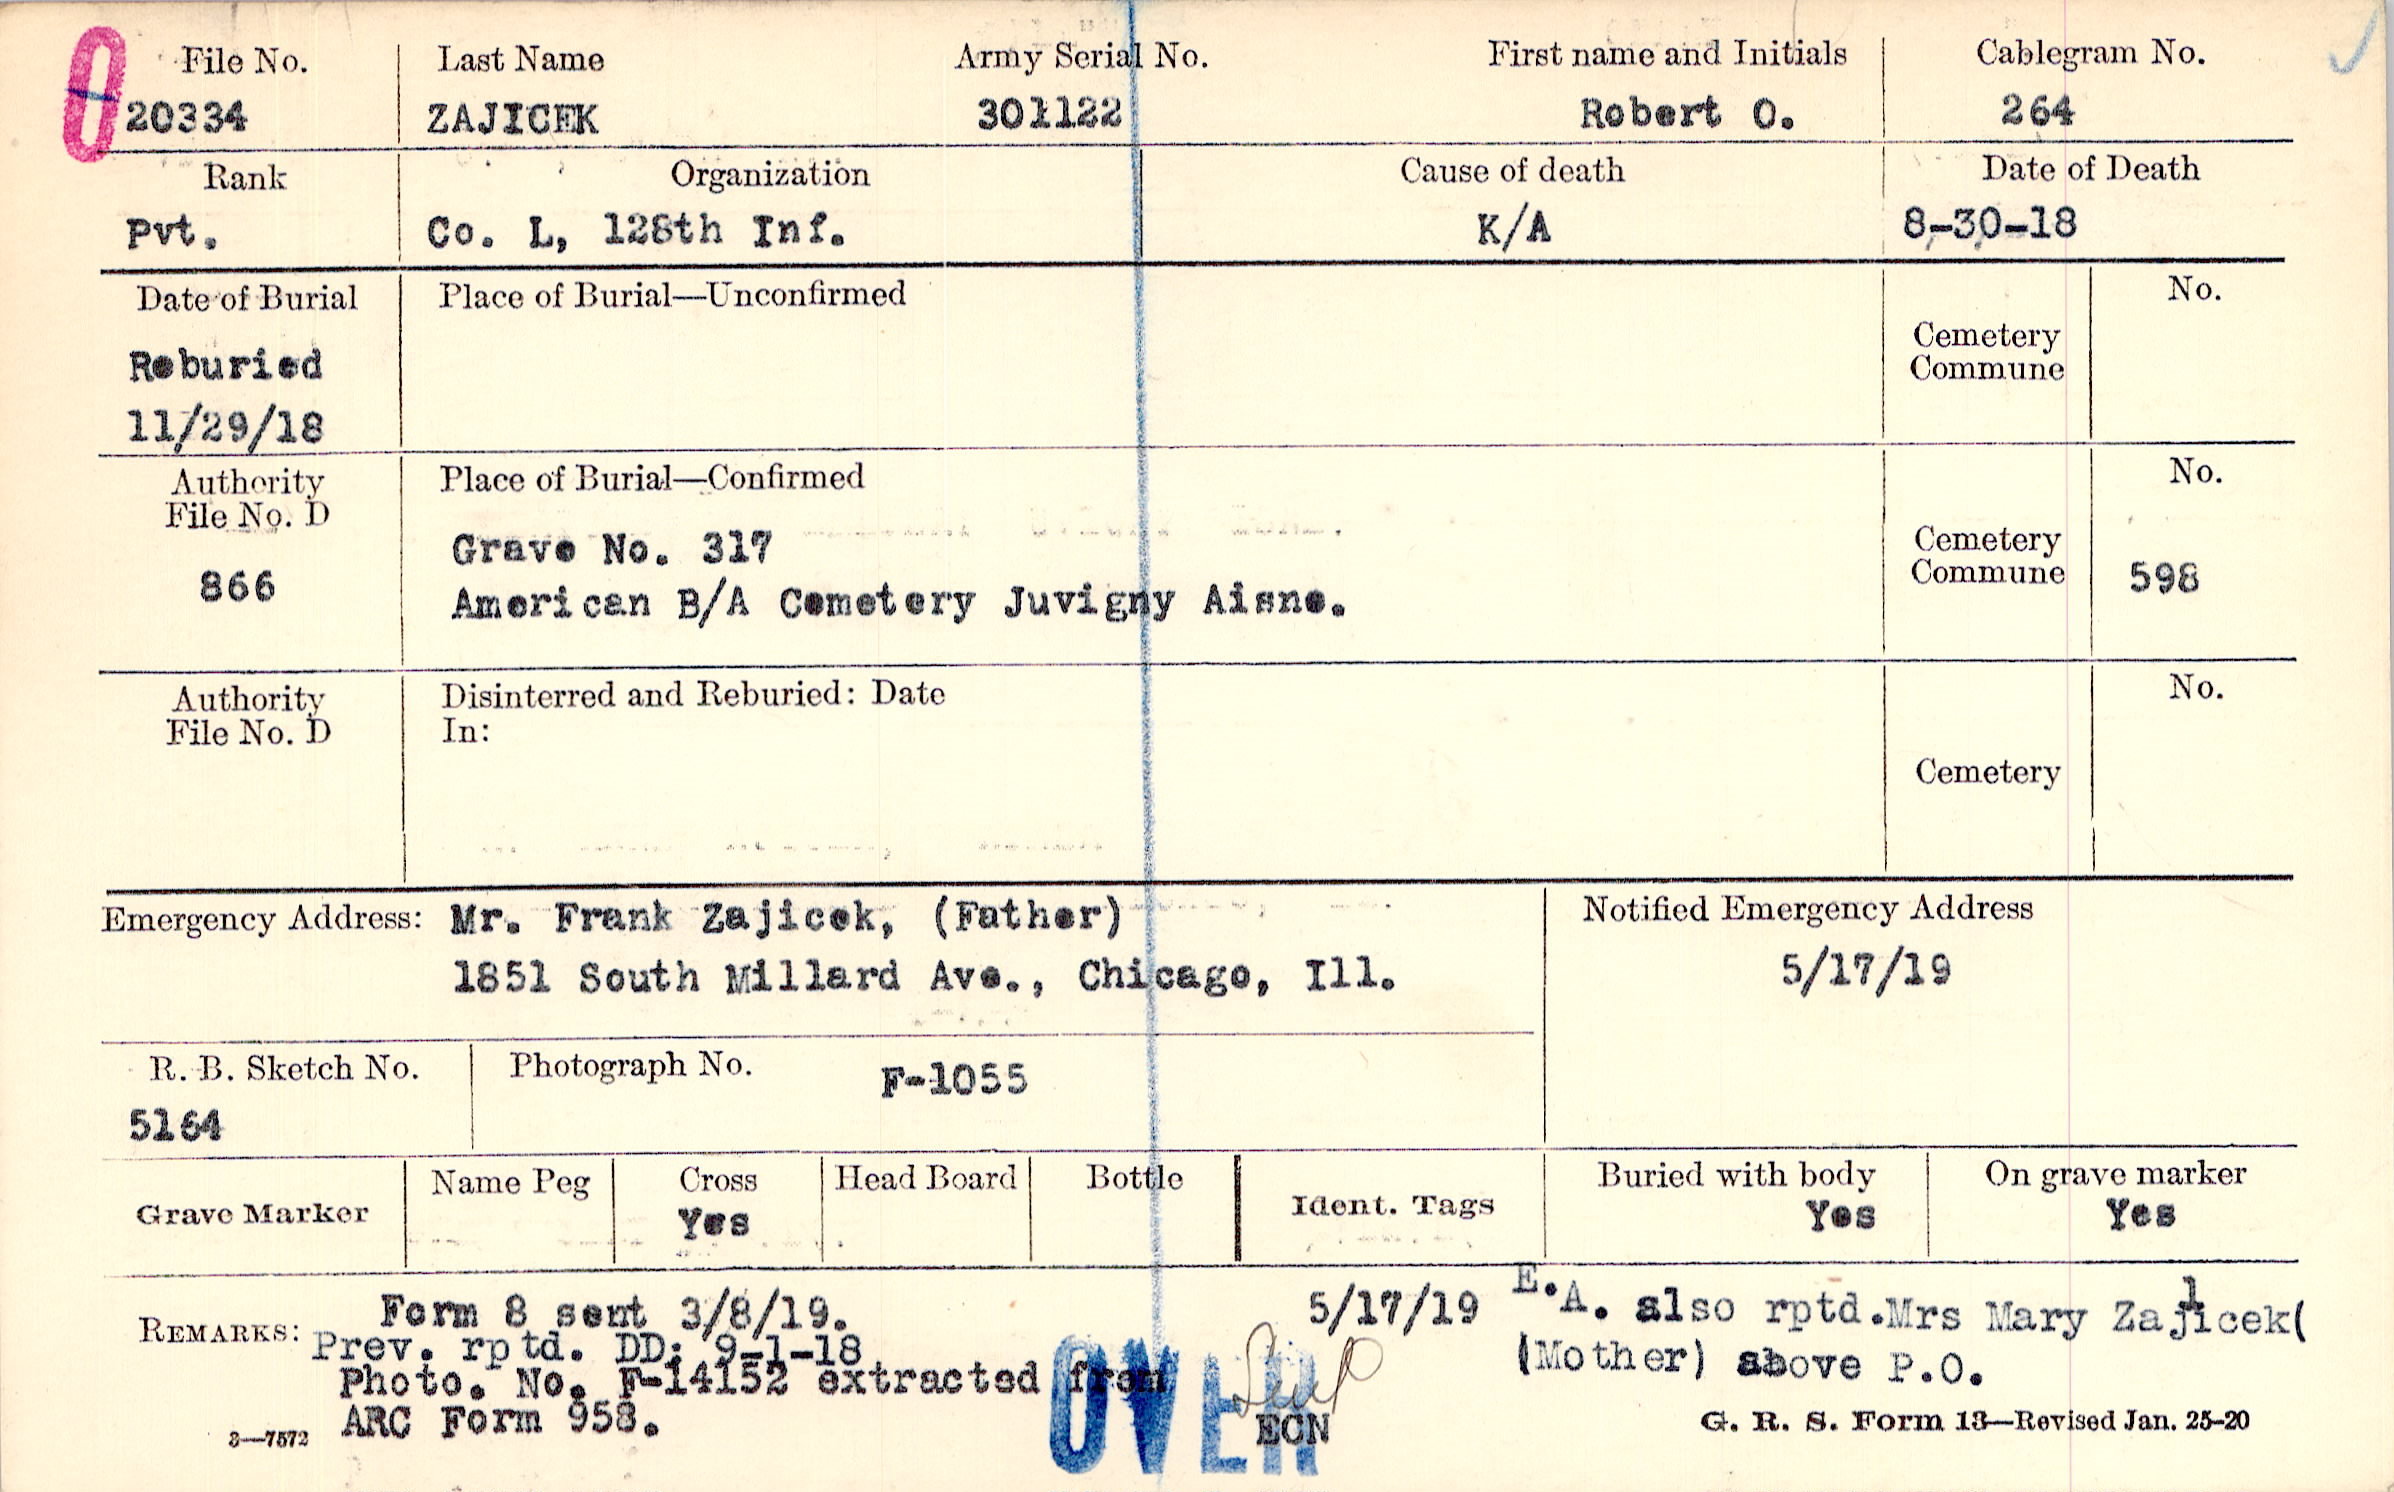 O
File No. Last Name Army Serial No. First name and Initials Cablegram No.
20334 ZAJICEK 301122 Robert O. 264
Rank Organization Cause of death Date of Death
Pvt. Co. L, 128th Inf. K/A 8-30-18
Date of Burial Place of Burial—Unconfirmed No.
Cemetery
Commune
Reburied
11/29/18
Authority Place of Burial—Confirmed No.
File No. D
Grave No. 317 Cemetery
866 Commune 598
American B/A Cemetery Juvigny Aisne.
Authority Disinterred and Reburied: Date No.
File No. D In:
Cemetery
Emergency Address: Mr. Frank Zajicek, (Father) Notified Emergency Address
1851 South Millard Ave., Chicago, Ill. 5/17/19
R. B. Sketch No. Photograph No. F-1055
5164
Grave Marker Name Peg Cross Head Board Bottle Ident. Tags Buried with body On grave marker
Yes Yes Yes
REMARKS: Form 8 sent 3/8/19. 5/17/19 E.A. also rptd.Mrs Mary Zajicek(
Prev. rptd. DD: 9-1-18 (Mother) above P.O.
Photo. No. F-14152 extracted from
ARC Form 958.
OVER
ECN
3—7572 G. R. S. Form 13—Revised Jan. 25-20